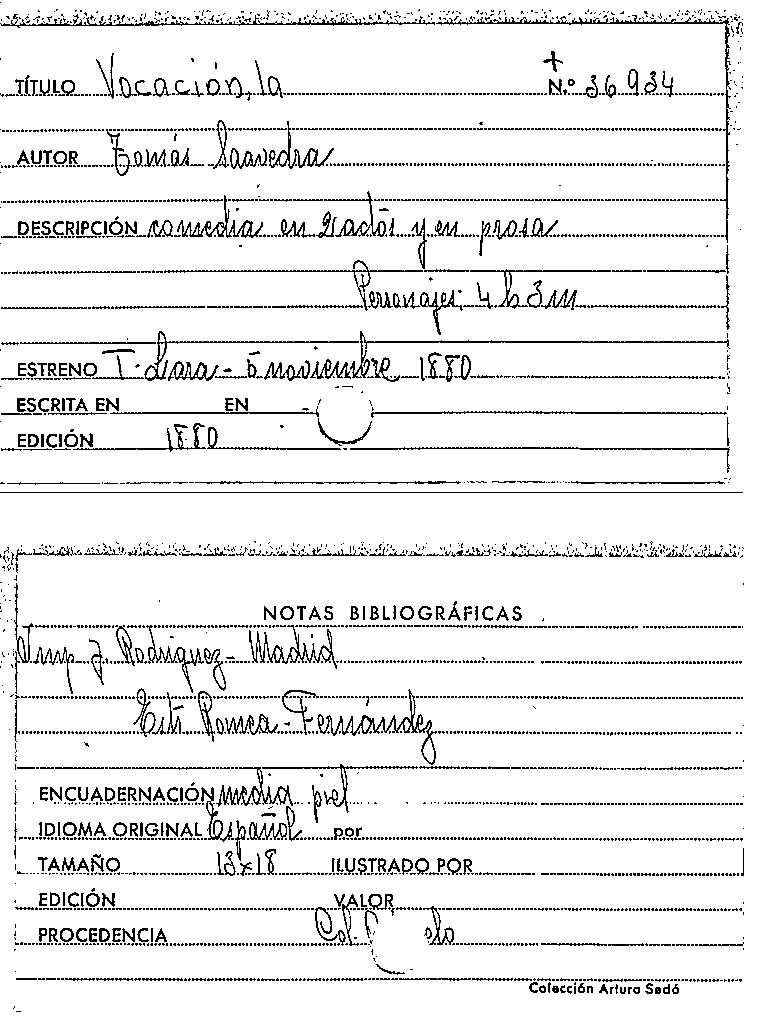 +
TÍTULO Vocación, la N.º 36934
AUTOR Tomás Saavedra
DESCRIPCIÓN comedia en 2 actos y en prosa
Personajes: 4 h 3 m
ESTRENO T. Lara - 5 noviembre 1880
ESCRITA EN EN -
EDICIÓN 1880
NOTAS BIBLIOGRÁFICAS
Imp J. Rodriguez - Madrid
Romea - Fernández
ENCUADERNACIÓN media piel
IDIOMA ORIGINAL Español por
TAMAÑO 13x18 ILUSTRADO POR
EDICIÓN VALOR
PROCEDENCIA Col.
Colección Arturo Sedó